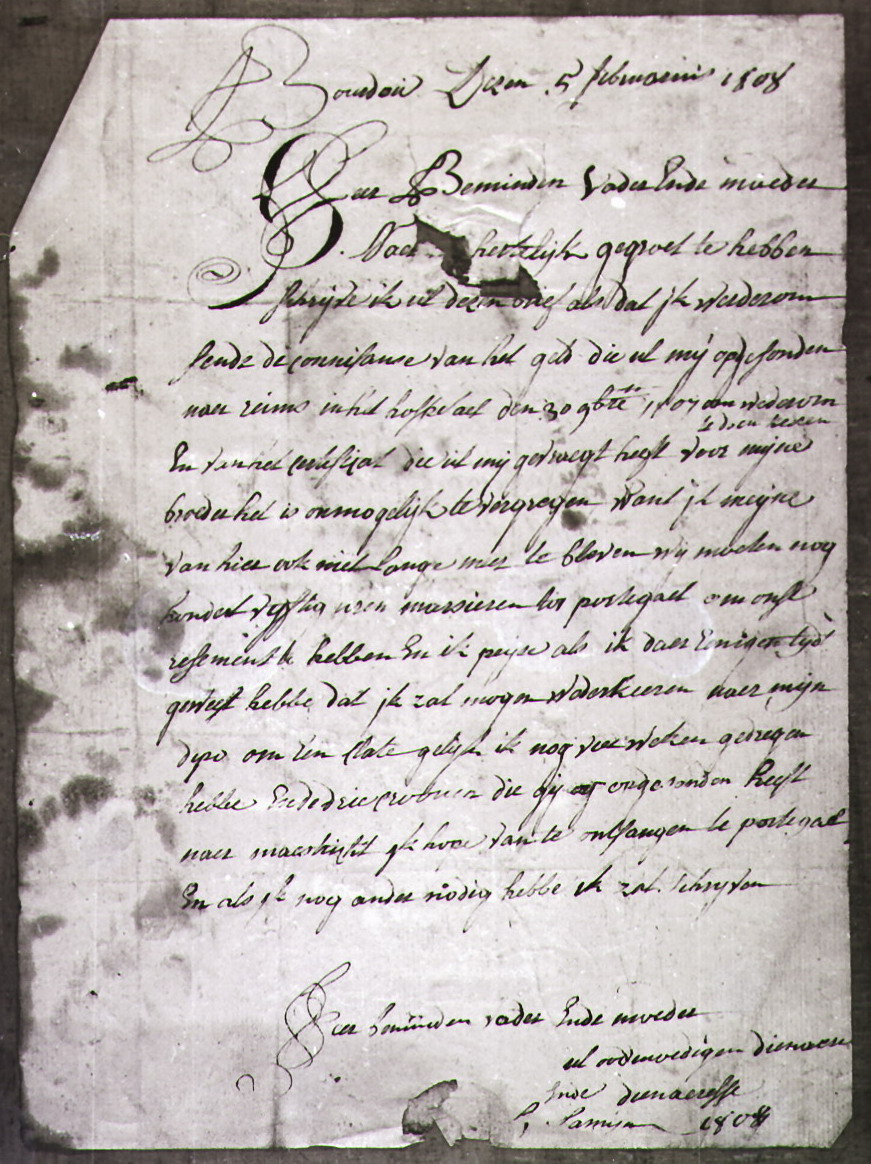 Bourdou Dezen 5 februarius 1808
Seer Beminden Vader Ende moeder
Naer hertelijk gegroet te hebben
schrijve ik ul dezen brief als dat jk wederom
sende de connisanse van het geld die ul mij opgesonden
naer reims in het den 30 9bre 1807 wederom
En van het certificat die ul mij gevraegt heeft voor mijne
broeder het is onmogelijk te vergregen want jk meijne
van hier ook niet lange meer te bleven wij moeten nog
hondert vyftig uren marsieren tot portegael om onse
resement te hebben En ik peijse als ik daer Eenigen tijd
geweest hebbe dat jk zal mogen wederkeeren naer mijn
depo om Een gelijk ik nog vier weken gedregen
hebbe En de drie croonen die gij opgesonden heeft
naer maestricht jk hope van te ontfangen te portegael
En als jk nog ander nodig hebbe ik zal schryven
Seer beminden vader Ende moeder
ul oodemoedigen dienaere
Ende dienaeresse
1808